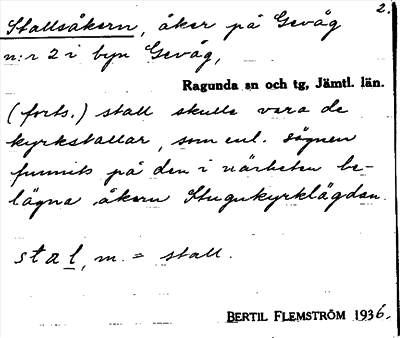 2.
Stallsåkern, åker på Gevåg
n:r 2 i byn Gevåg,
Ragunda sn och tg, Jämtl. län.
(forts.) stall skulle vara de
kyrkstallar, som enl. sägnen
funnits på den i närheten be-
lägna åkern Stugukyrklägdan.
stal, m. = stall.
BERTIL FLEMSTRÖM 1936.